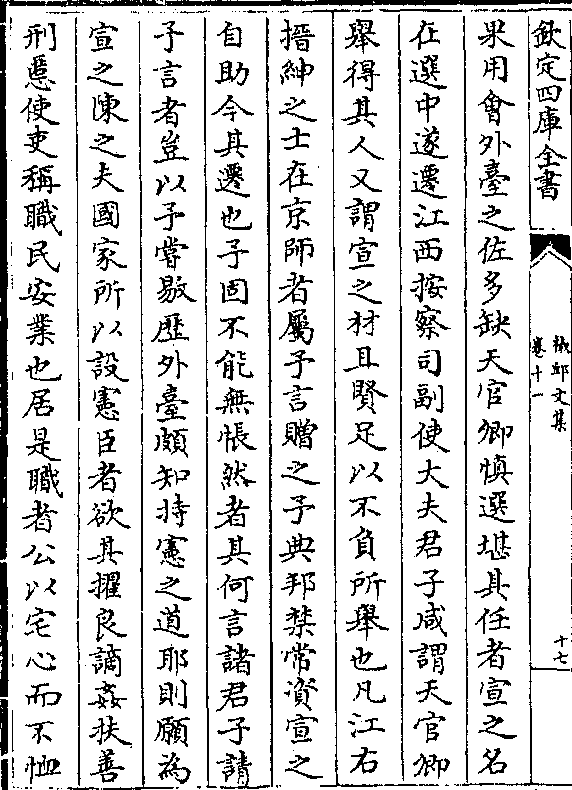 欽定四庫全書
椒邱文集
卷十一
十七
果用會外臺之佐多缺天官卿慎選堪其任者宣之名
在選中遂遷江西按察司副使大夫君子咸謂天官卿
舉得其人又謂宣之材且賢足以不負所舉也凡江右
搢紳之士在京師者屬予言贈之予典邦禁常資宣之
自助今其遷也予固不能無悵然者其何言諸君子請
予言者豈以予嘗敭歴外臺頗知持憲之道耶則願為
宣之陳之夫國家所以設憲臣者欲其擢良讁姦扶善
刑慝使吏稱職民安業也居是職者公以宅心而不恤